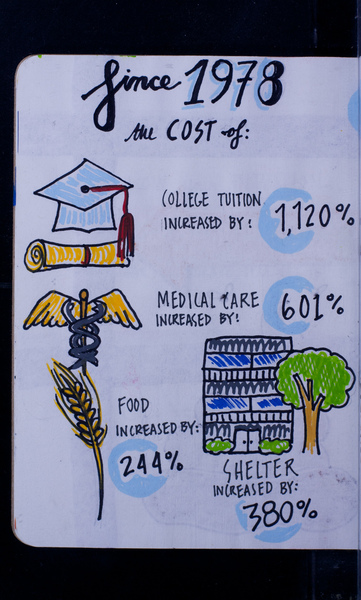 Since 1978
the COST of:
COLLEGE TUITION
INCREASED BY:
1,120%
MEDICAL CARE
INCREASED BY:
601%
FOOD
INCREASED BY:
244%
SHELTER
INCREASED BY:
380%